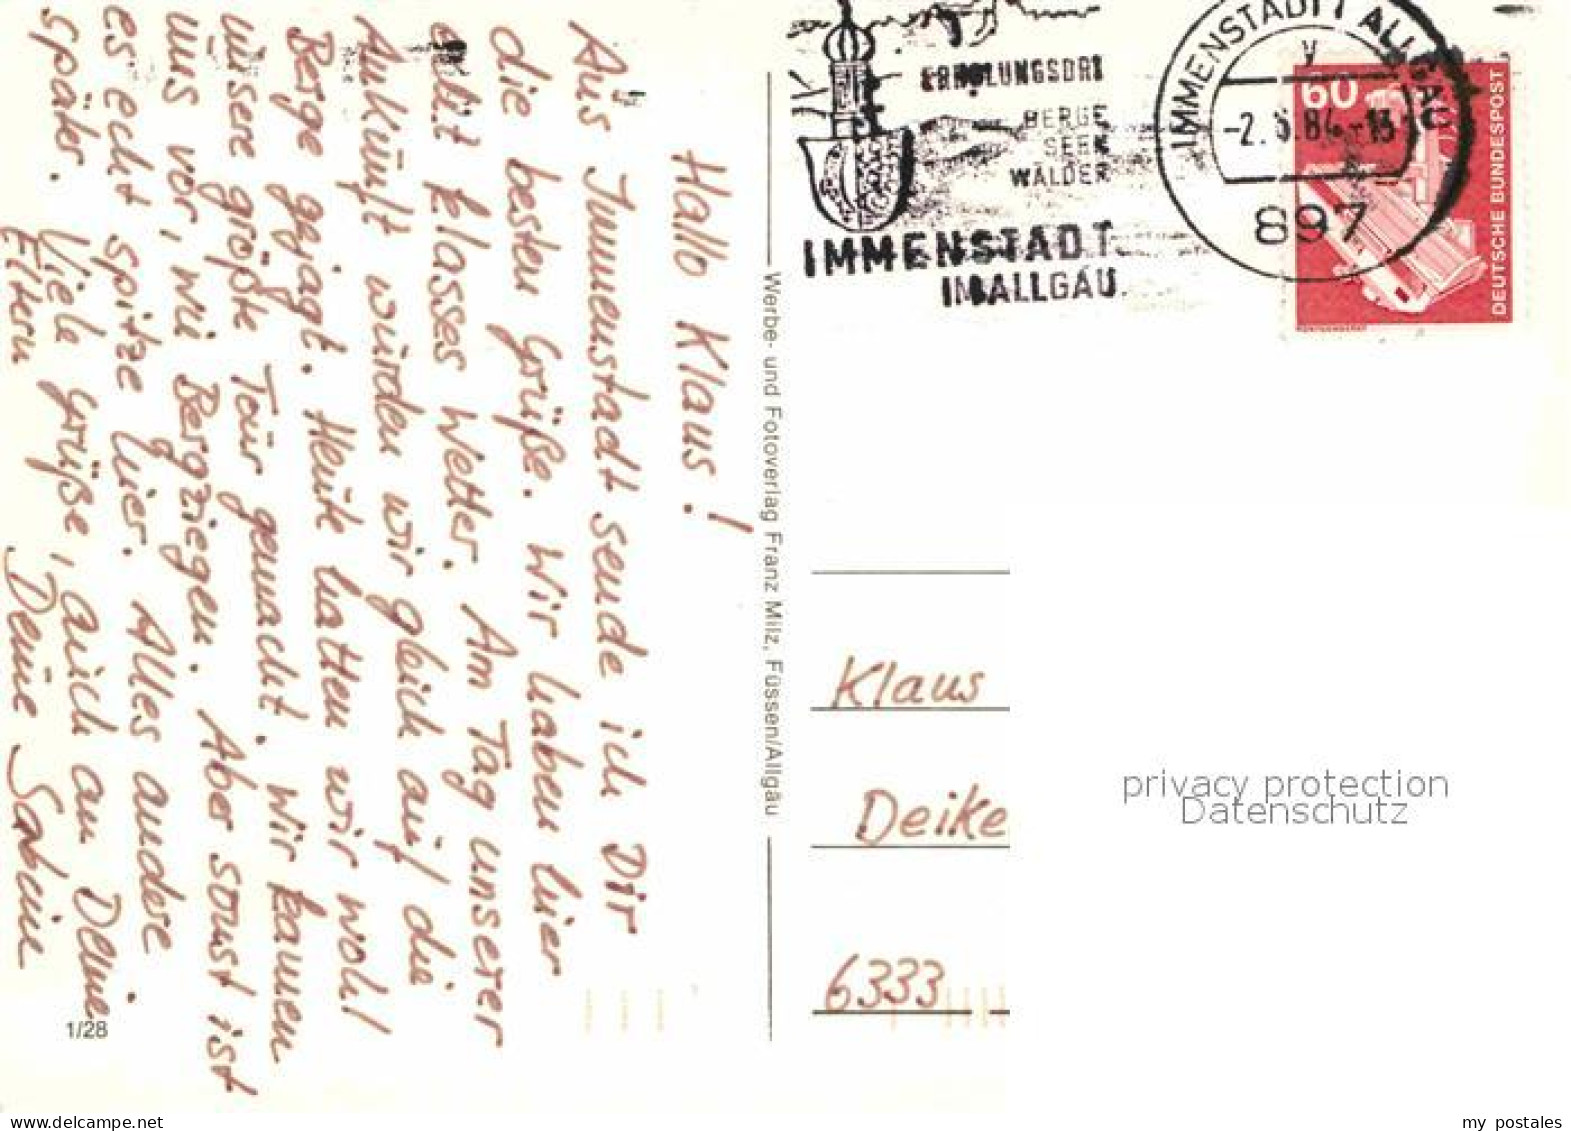 Hallo Klaus!
Aus Immenstadt sende ich Dir
die besten Grüße. Wir haben hier
echt klasses Wetter. Am Tag unserer
Ankunft wurden wir gleich auf die
Berge gejagt. Heute hatten wir wohl
unsere größte Tour gemacht. Wir kamen
uns vor, wie Bergziegen. Aber sonst ist
es echt spitze hier. Alles andere
später. Viele Grüße, auch an Deine
Eltern Deine Sabine
1/28
Werbe- und Fotoverlag Franz Milz, Füssen/Allgäu
ERHOLUNGSORT
BERGE
SEEN
WÄLDER
IMMENSTADT
IM ALLGÄU
IMMENSTADT I ALLGÄU
v
84
897
60
DEUTSCHE BUNDESPOST
RÖNTGENGERÄT
Klaus
Deike
6333
privacy protection
Datenschutz
my postales